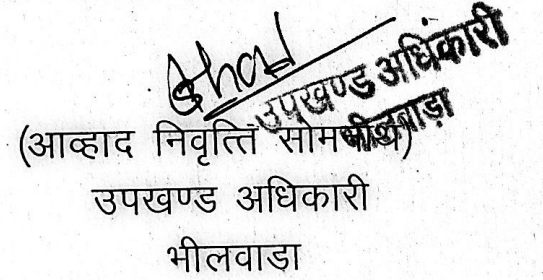 उपखण्ड अधिकारी
भीलवाड़ा
(आव्हाद निवृत्ति सोमनाथ)
उपखण्ड अधिकारी
भीलवाडा